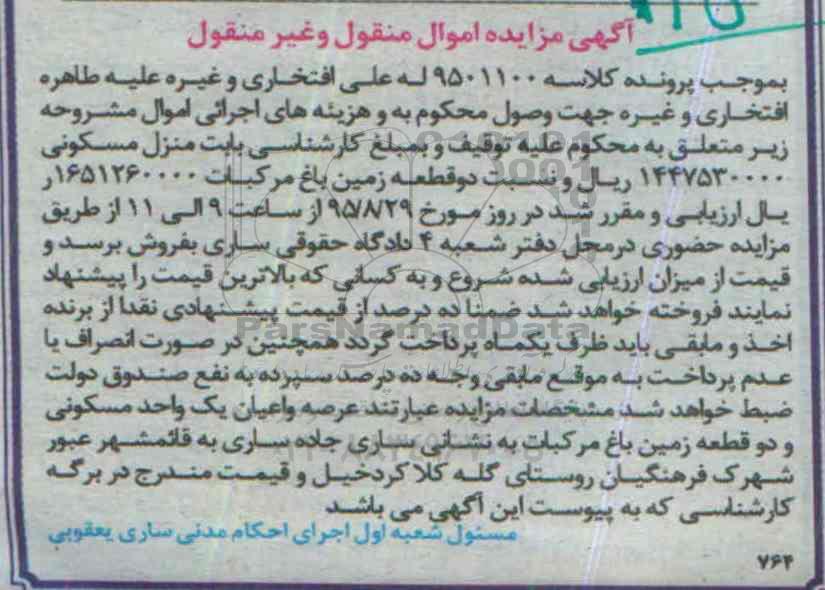 آگهی مزایده اموال منقول وغیر منقول
بموجب پرونده کلاسه ۹۵۰۱۱۰۰ له علی افتخاری و غیره علیه طاهره
افتخاری و غیره جهت وصول محکوم به و هزینه های اجرائی اموال مشروحه
زیر متعلق به محکوم علیه توقیف و بمبلغ کارشناسی بابت منزل مسکونی
۱۴۴۷۵۳۰۰۰۰ ریال و نسبت دوقطعه زمین باغ مرکبات ۱۶۵۱۲۶۰۰۰۰ر
یال ارزیابی و مقرر شد در روز مورخ ۹۵/۸/۲۹ از ساعت ۹ الی ۱۱ از طریق
مزایده حضوری درمحل دفتر شعبه ۴ دادگاه حقوقی ساری بفروش برسد و
قیمت از میزان ارزیابی شده شروع و به کسانی که بالاترین قیمت را پیشنهاد
نمایند فروخته خواهد شد ضمنا ده درصد از قیمت پیشنهادی نقدا از برنده
اخذ و مابقی باید ظرف یکماه پرداخت گردد همچنین در صورت انصراف یا
عدم پرداخت به موقع مابقی وجه ده درصد سپرده به نفع صندوق دولت
ضبط خواهد شد مشخصات مزایده عبارتند عرصه واعیان یک واحد مسکونی
و دو قطعه زمین باغ مرکبات به نشانی ساری جاده ساری به قائمشهر عبور
شهرک فرهنگیان روستای گله کلا کردخیل و قیمت مندرج در برگه
کارشناسی که به پیوست این آگهی می باشد
مسئول شعبه اول اجرای احکام مدنی ساری یعقوبی
۷۶۴
ParsNamadData